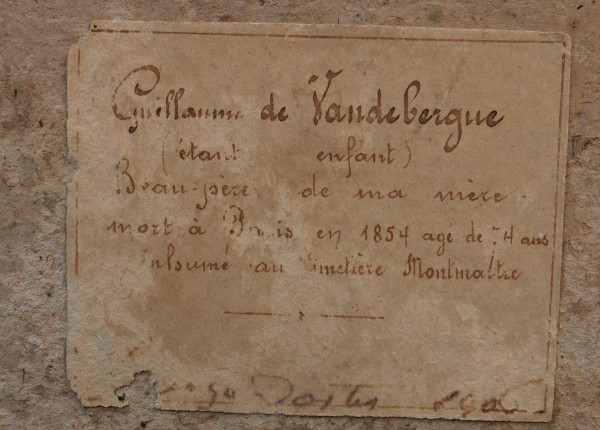 Guillaume de Vandebergue
(étant enfant)
Beau-père de ma mère.
mort à Paris en 1854 agé de 74 ans
inhumé au Cimetière Montmattre